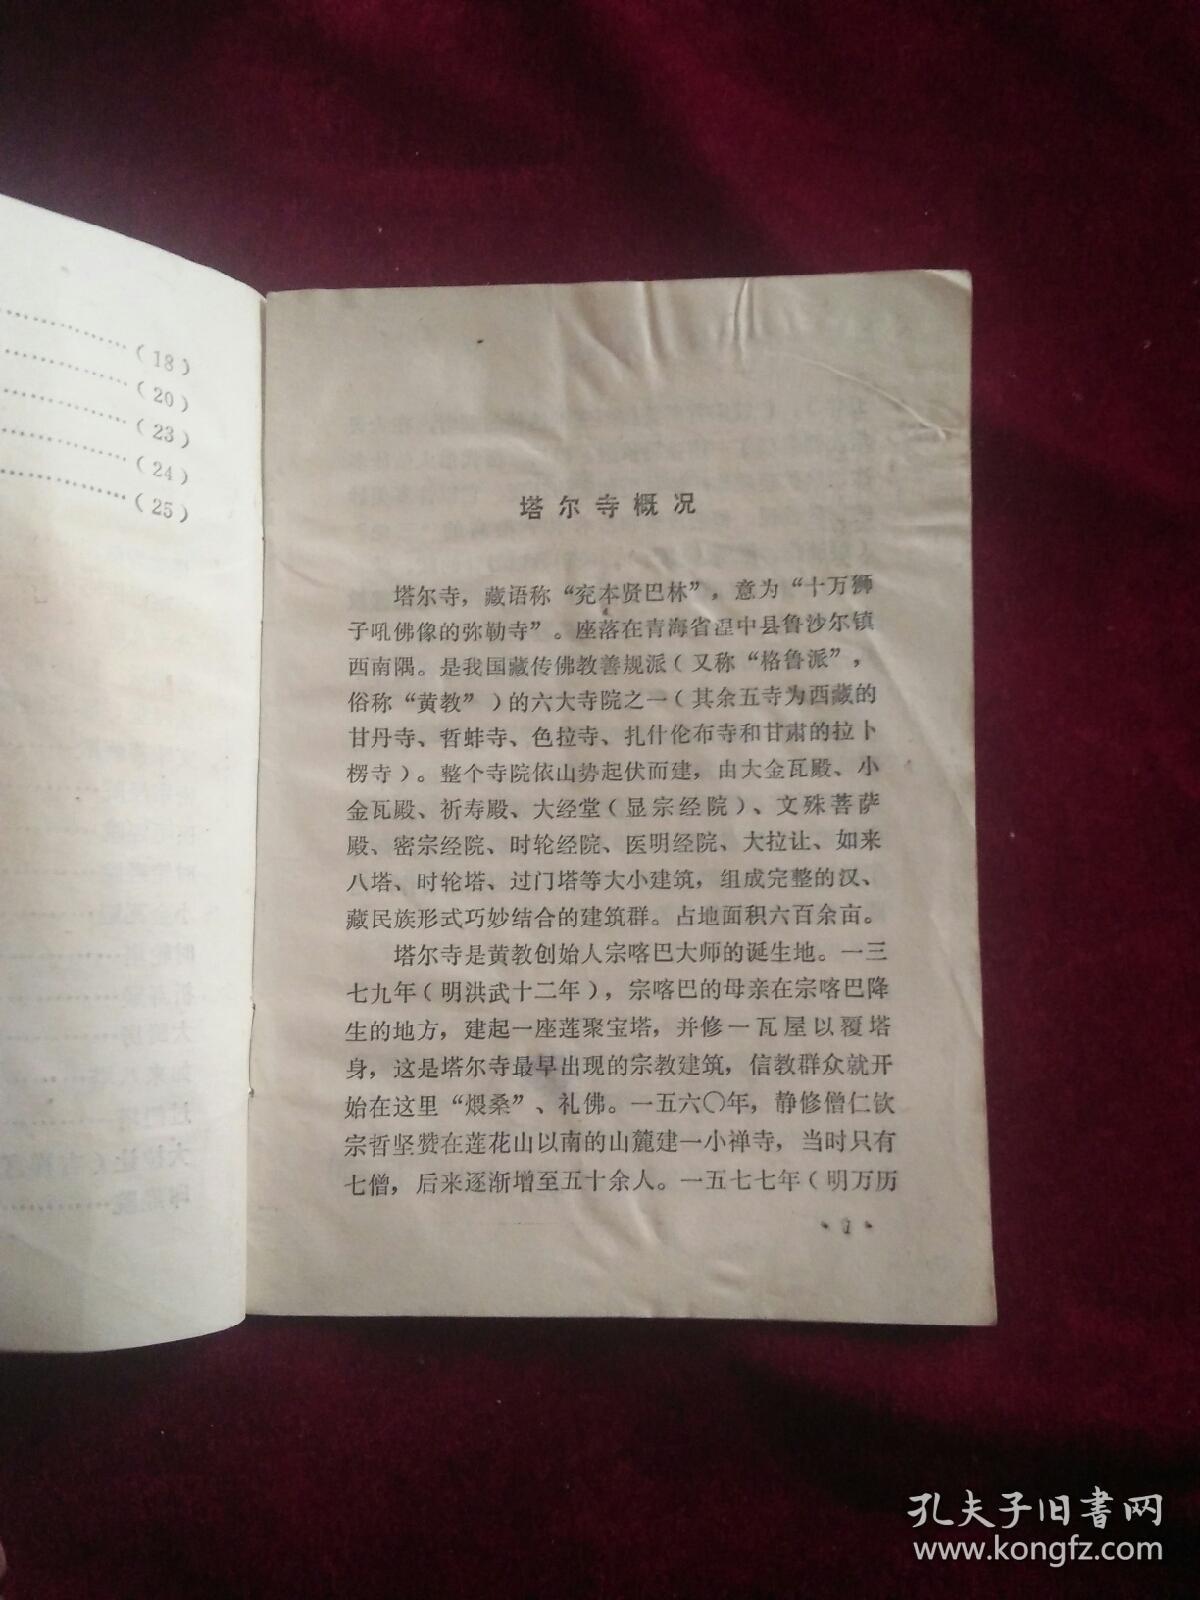 (18)
(20)
(23)
(24)
(25)
塔尔寺概况
塔尔寺，藏语称“兖本贤巴林”，意为“十万狮
子吼佛像的弥勒寺”。座落在青海省湟中县鲁沙尔镇
西南隅。是我国藏传佛教善规派（又称“格鲁派”，
俗称“黄教”）的六大寺院之一（其余五寺为西藏的
甘丹寺、哲蚌寺、色拉寺、扎什伦布寺和甘肃的拉卜
楞寺）。整个寺院依山势起伏而建，由大金瓦殿、小
金瓦殿、祈寿殿、大经堂（显宗经院）、文殊菩萨
殿、密宗经院、时轮经院、医明经院、大拉让、如来
八塔、时轮塔、过门塔等大小建筑，组成完整的汉、
藏民族形式巧妙结合的建筑群。占地面积六百余亩。
塔尔寺是黄教创始人宗喀巴大师的诞生地。一三
七九年（明洪武十二年），宗喀巴的母亲在宗喀巴降
生的地方，建起一座莲聚宝塔，并修一瓦屋以覆塔
身，这是塔尔寺最早出现的宗教建筑，信教群众就开
始在这里“煨桑”、礼佛。一五六〇年，静修僧仁钦
宗哲坚赞在莲花山以南的山麓建一小禅寺，当时只有
七僧，后来逐渐增至五十余人。一五七七年（明万历
·1·
孔夫子旧书网
www.kongfz.com